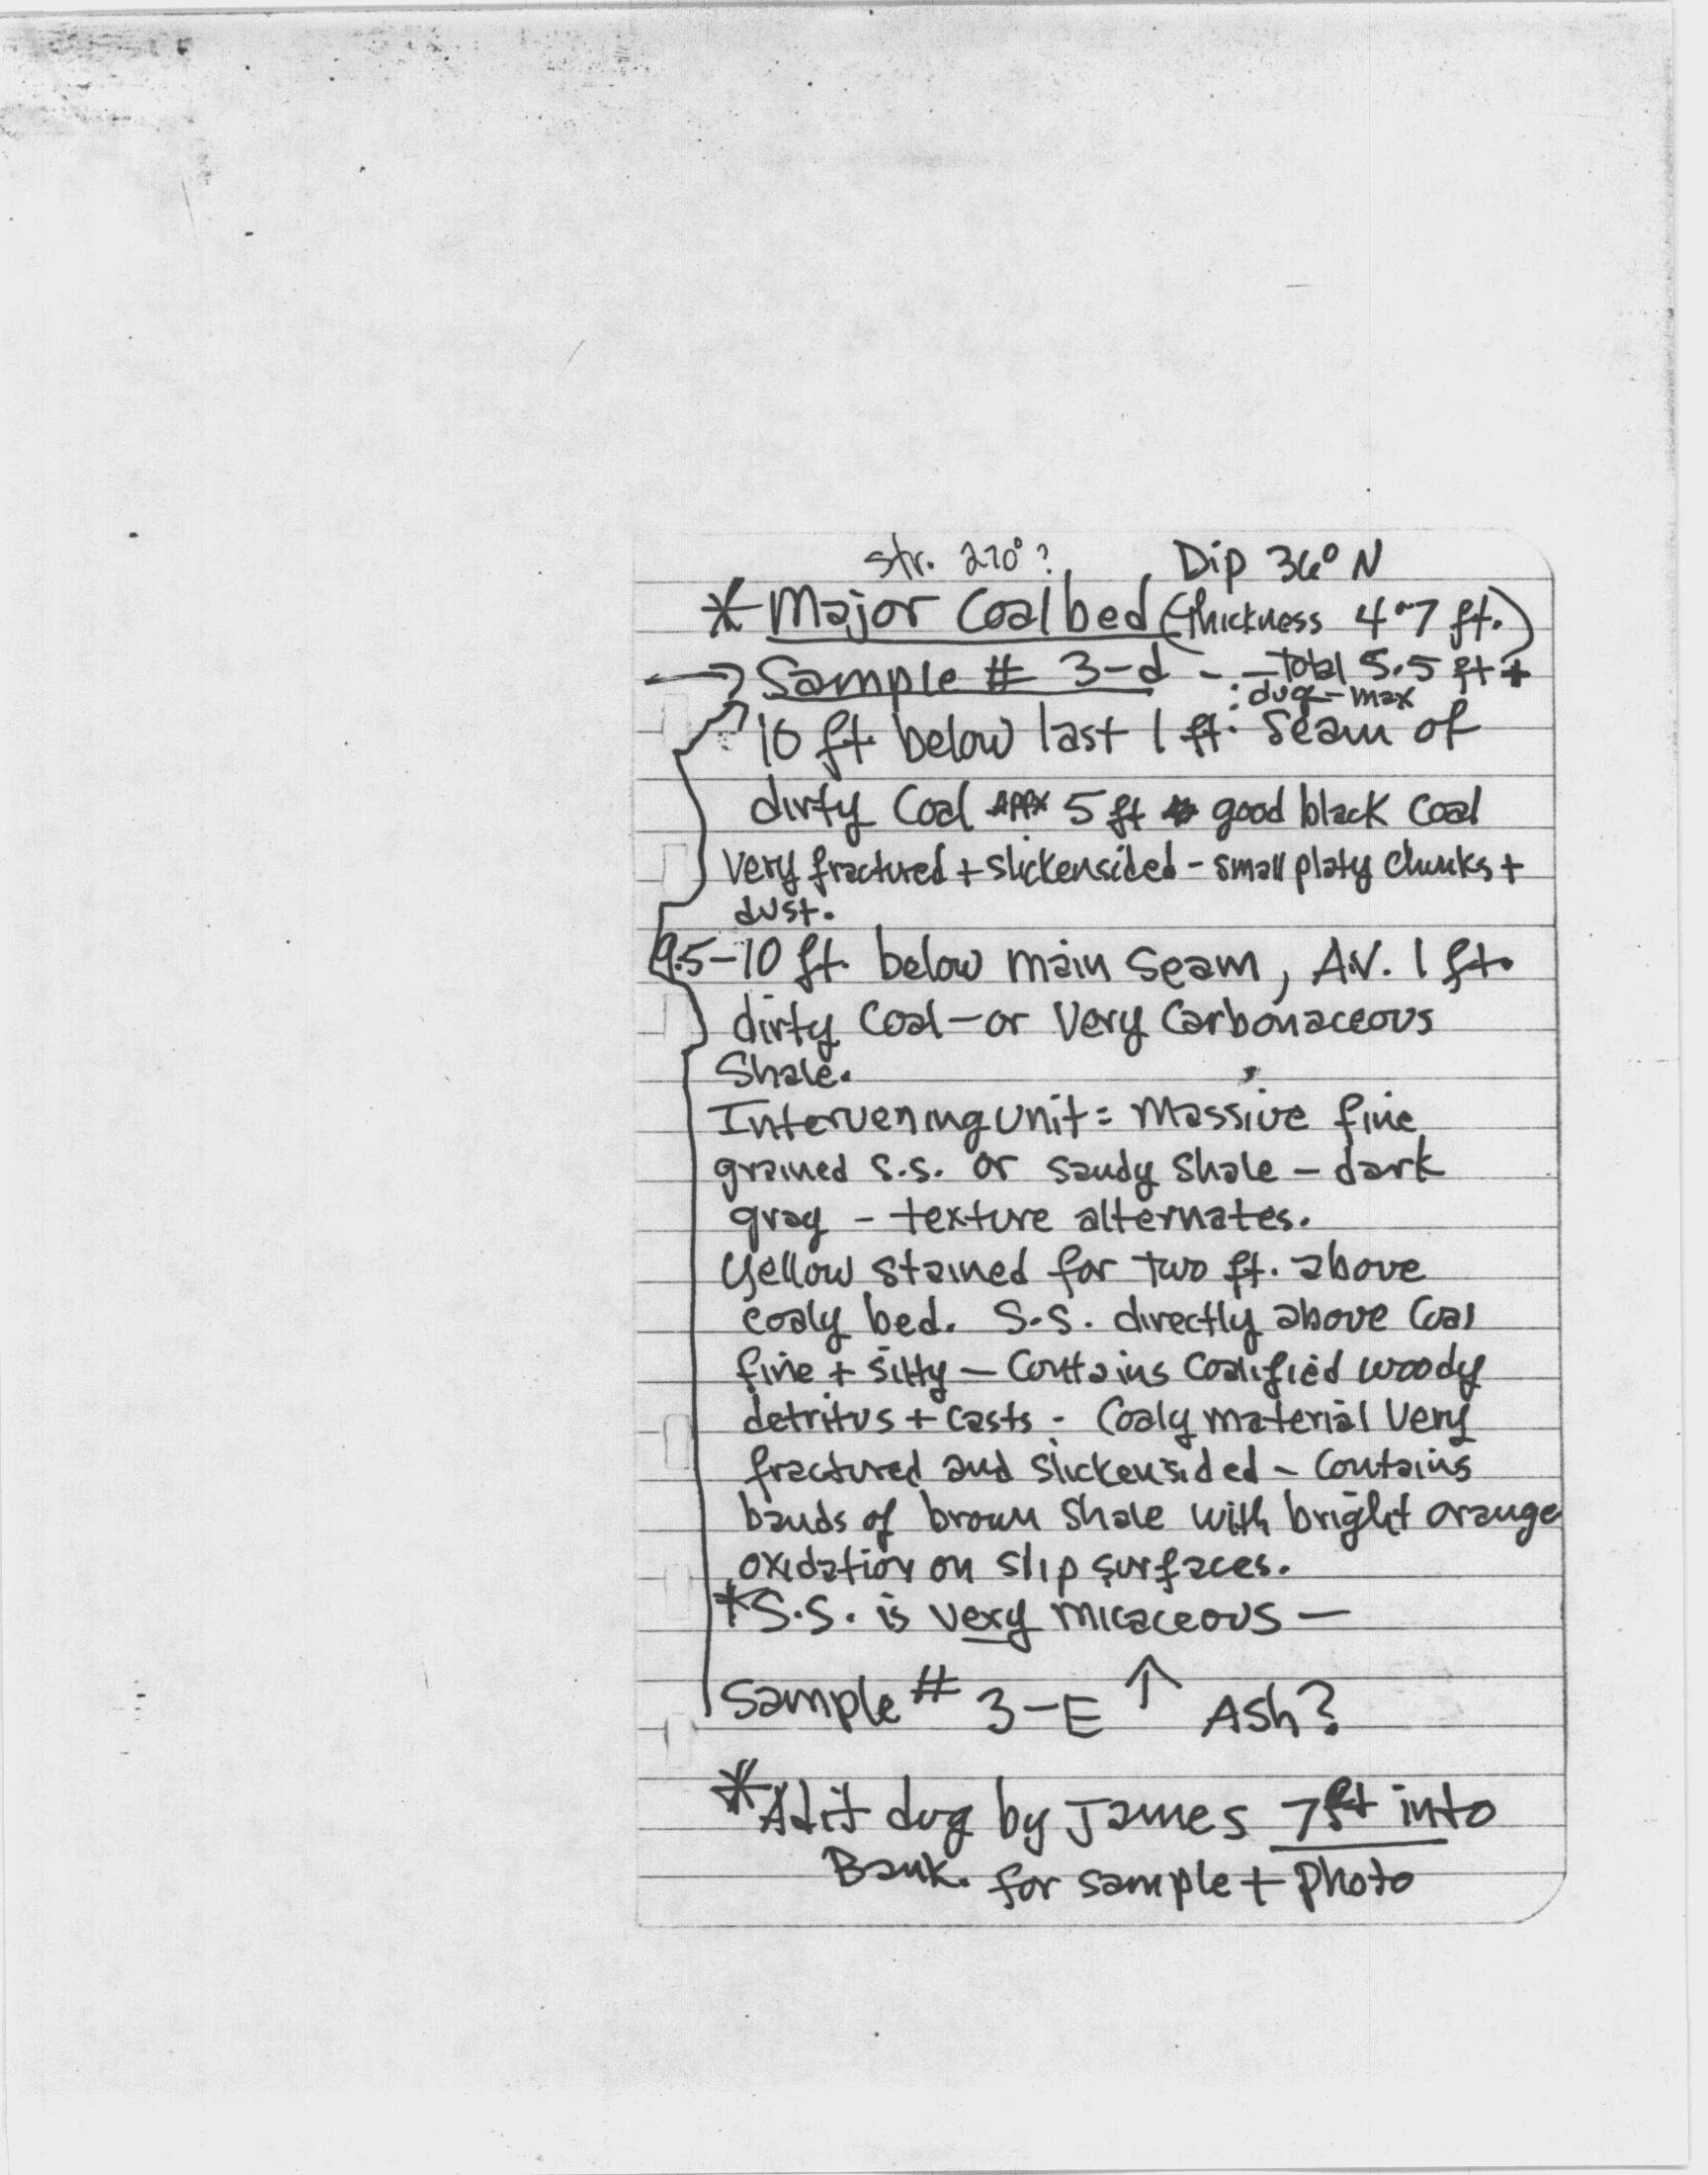 str. 270°? Dip 36° N
* Major Coal bed (thickness 4-7 ft.)
→ Sample # 3-d - - Total 5.5 ft +
: dug - max
10 ft. below last 1 ft. seam of
dirty Coal APPX 5 ft good black coal
Very fractured + slickensided - small platy chunks +
dust.
9.5-10 ft. below main seam, AV. 1 ft.
dirty Coal - or Very Carbonaceous
Shale.
Intervening unit = Massive fine
grained s.s. or sandy shale - dark
gray - texture alternates.
Yellow stained for two ft. above
coaly bed. S.S. directly above Coal
fine + silty - Contains Coalified woody
detritus + casts - Coaly material Very
fractured and slickensided - Contains
bands of brown shale with bright orange
oxidation on slip surfaces.
* S.S. is very micaceous -
Sample # 3-E ↑ Ash?
* Adit dug by James 7 ft into
Bank. for sample + photo